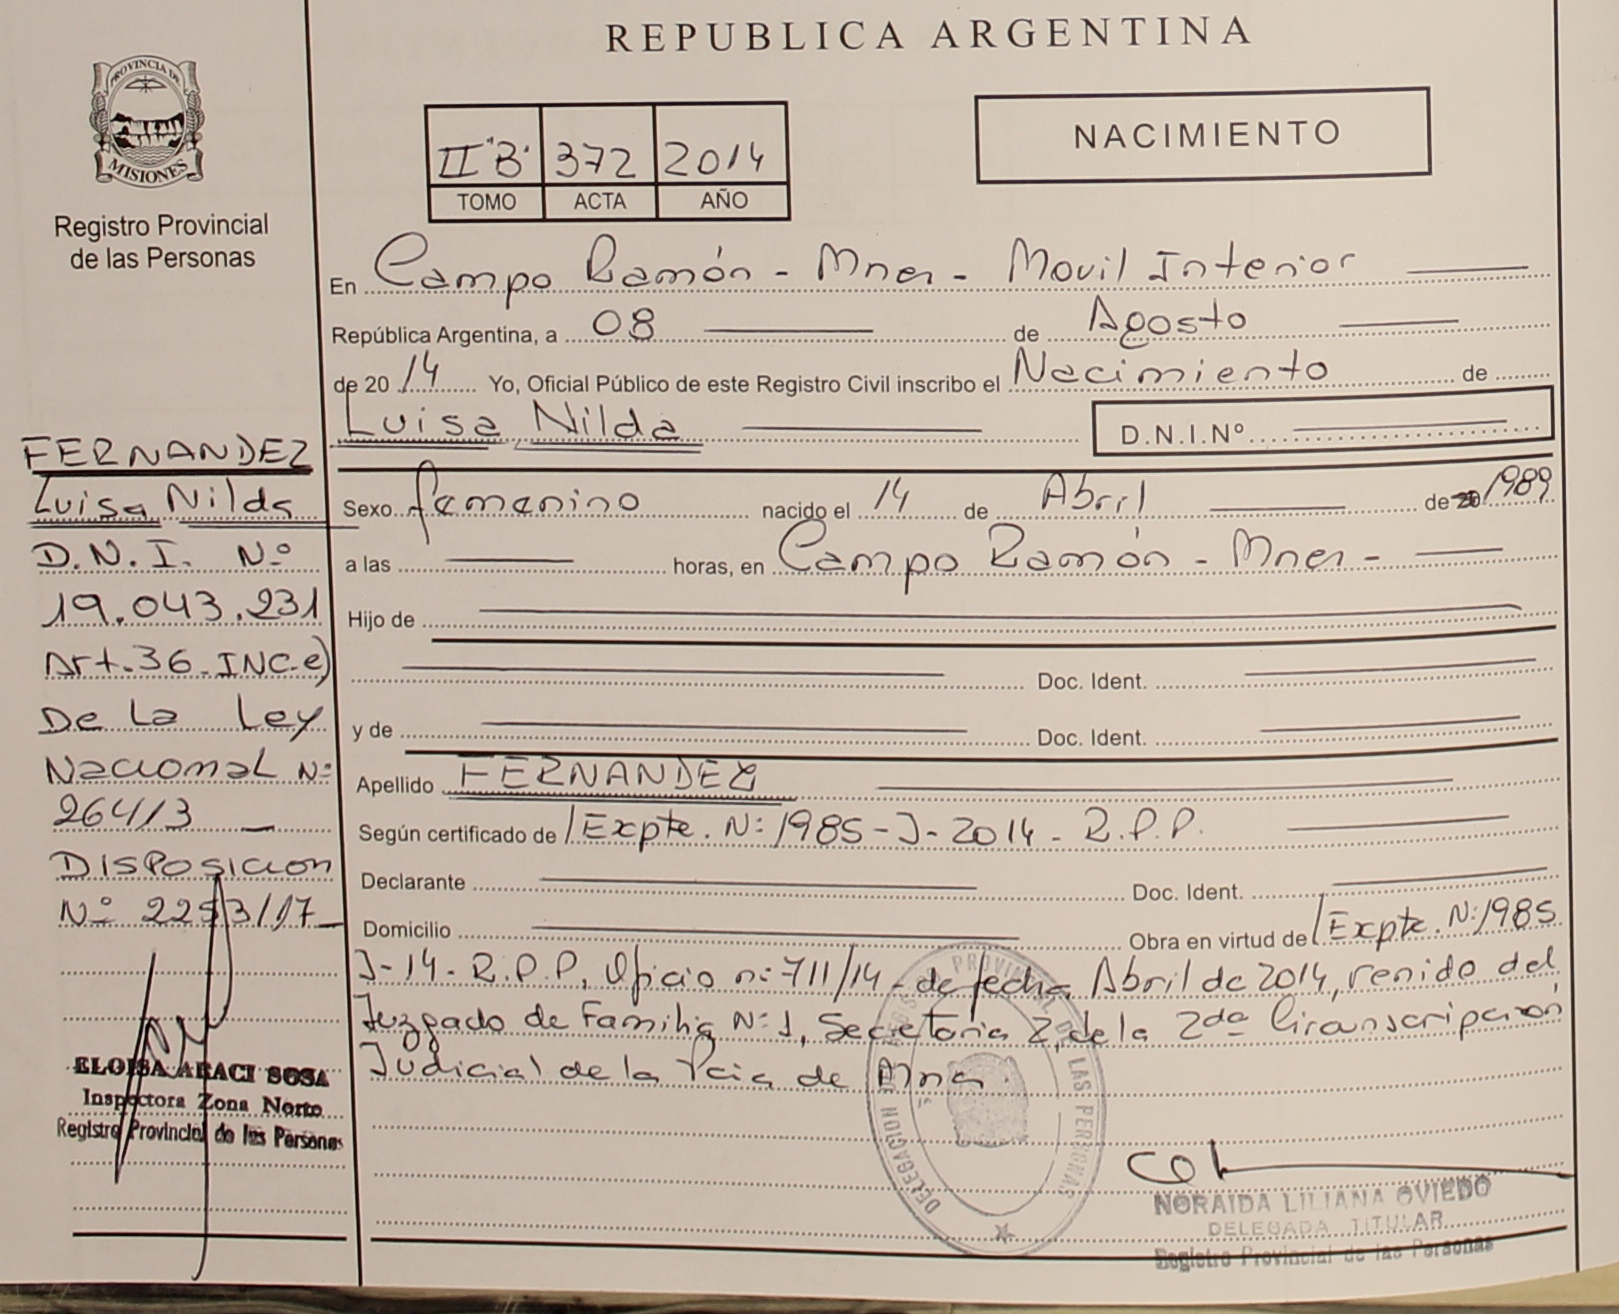 REPUBLICA ARGENTINA
PROVINCIA DE
MISIONES
Registro Provincial
de las Personas
II "B" 372 2014
TOMO ACTA AÑO
NACIMIENTO
En Campo Ramón - Mnes - Movil Interior
República Argentina, a 08 de Agosto
de 20 14 Yo, Oficial Público de este Registro Civil inscribo el Nacimiento de
Luisa Nilda D.N.I.Nº
Sexo femenino nacido el 14 de Abril de 20 1989
a las horas, en Campo Ramón - Mnes -
Hijo de
Doc. Ident.
y de Doc. Ident.
Apellido FERNANDEZ
Según certificado de Expte. Nº 1985-J-2014 - R.P.P.
Declarante Doc. Ident.
Domicilio Obra en virtud de Expte. Nº 1985
J-14-R.P.P, Oficio nº 711/14 - de fecha Abril de 2014, renido del
Juzgado de Familia Nº 1, Secretoria 2, de la 2da Circunscripción
Judicial de la Pcia de Mnes.
FERNANDEZ
Luisa Nilda
D.N.I. Nº
19.043.231
Art. 36 - INC. e)
De La Ley
Nacional Nº
26413 -
DISPOSICION
Nº 2253/17 -
ELOISA ARACI SOSA
Inspectora Zona Norte
Registro Provincial de las Personas
PROVINCIAL DE LAS PERSONAS
DELEGACION
NORAIDA LILIANA OVIEDO
DELEGADA TITULAR
Registro Provincial de las Personas